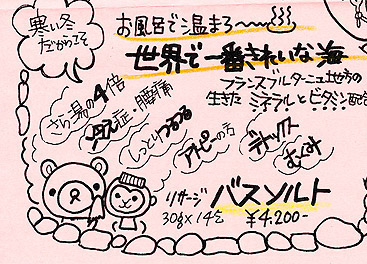 寒い冬
だからこそ
お風呂で温まろ〜
世界で一番きれいな海
フランスブルターニュ地方の
生きたミネラルとビタミン配合
さら湯の4倍
冷え症
腰痛
しっとりつるつる
アトピーの方
デトックス
むくみ
リサージ
バスソルト
30g×14包
¥4,200-